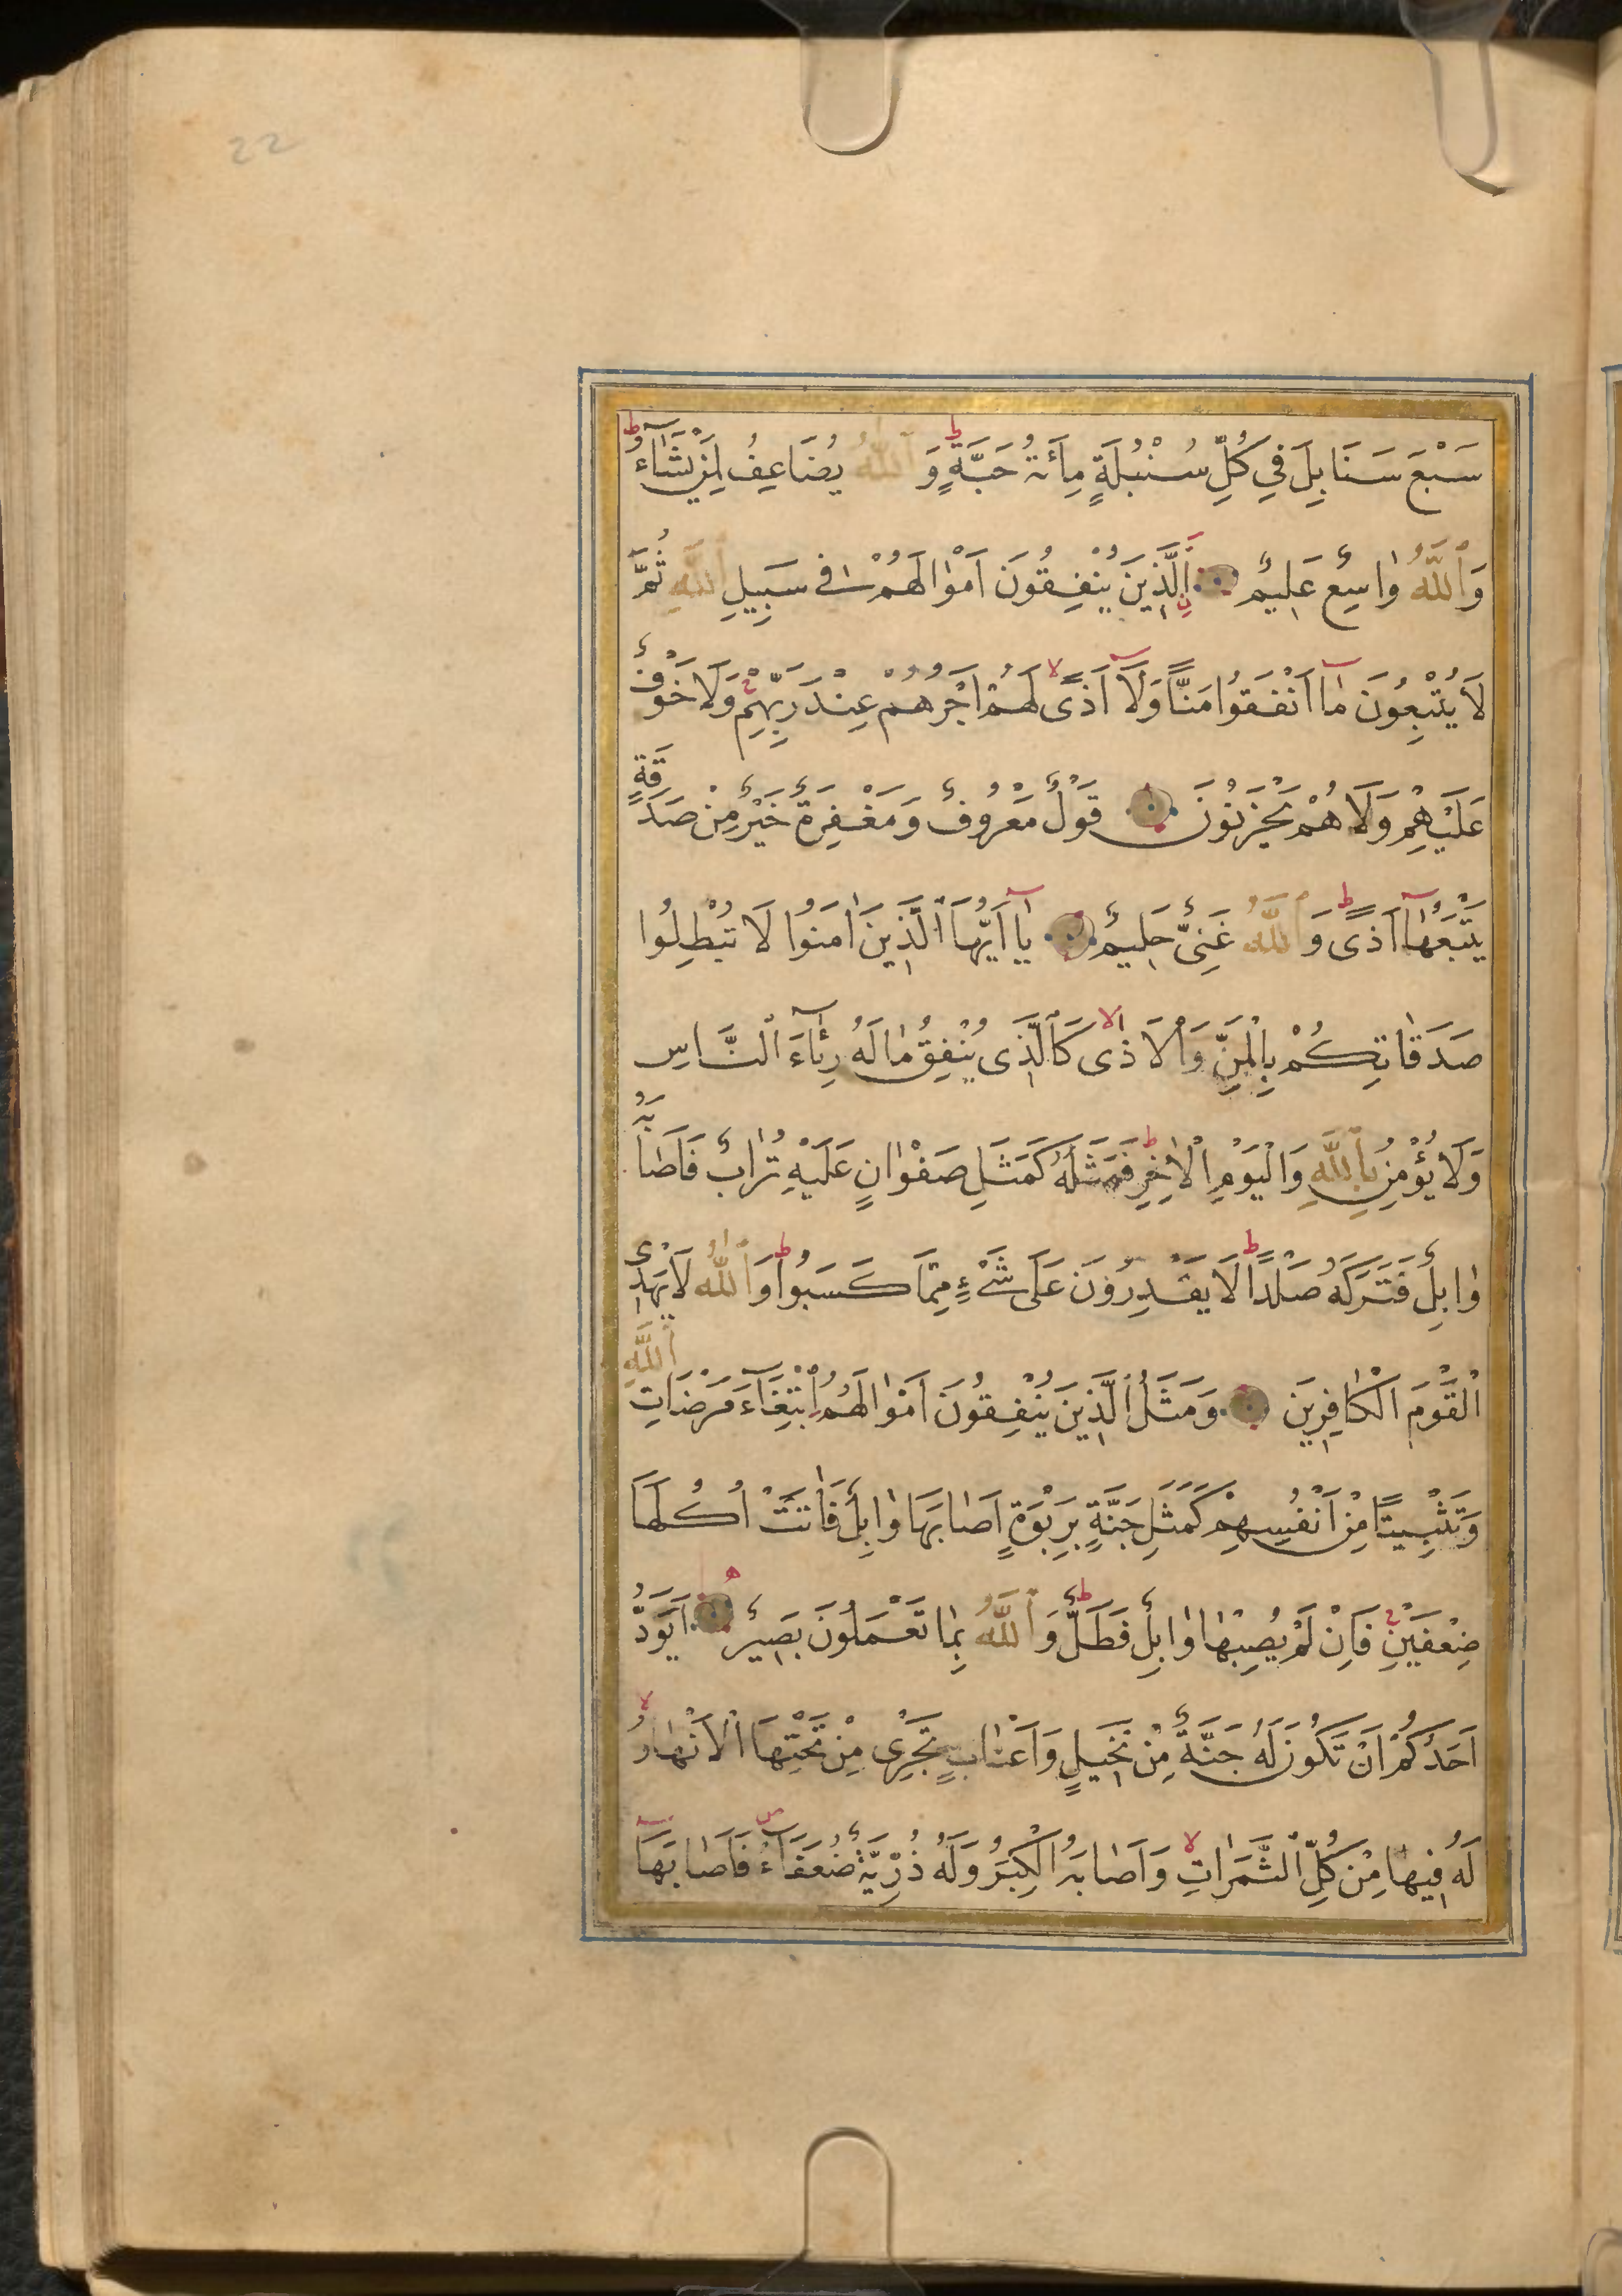 22
سَبْعَ سَنَابِلَ فِي كُلِّ سُنْبُلَةٍ مِائَةُ حَبَّةٍ ط وَاللّٰهُ يُضَاعِفُ لِمَنْ يَشَاءُ ط
وَاللّٰهُ وَاسِعٌ عَلِيمٌ اَلَّذِينَ يُنْفِقُونَ اَمْوٰالَهُمْ فِي سَبِيلِ اللّٰهِ ثُمَّ
لَا يُتْبِعُونَ مٰا اَنْفَقُوا مَنًّا وَلَا اَذًى لا لَهُمْ اَجْرُهُمْ عِنْدَ رَبِّهِمْ ج وَلَا خَوْفٌ
عَلَيْهِمْ وَلَا هُمْ يَحْزَنُونَ قَوْلٌ مَعْرُوفٌ وَمَغْفِرَةٌ خَيْرٌ مِنْ صَدَقَةٍ
يَتْبَعُهٰا اَذًى ط وَاللّٰهُ غَنِيٌّ حَلِيمٌ يٰا اَيُّهَا الَّذِينَ اٰمَنُوا لَا تُبْطِلُوا
صَدَقٰاتِكُمْ بِالْمَنِّ وَالْاَذٰى لا كَالَّذِى يُنْفِقُ مٰالَهُ رِئٰاءَ النَّاسِ
وَلَا يُؤْمِنُ بِاللّٰهِ وَالْيَوْمِ الْاٰخِرِ ط فَمَثَلُهُ كَمَثَلِ صَفْوٰانٍ عَلَيْهِ تُرٰابٌ فَاَصٰابَهُ
وٰابِلٌ فَتَرَكَهُ صَلْدًا ط لَا يَقْدِرُونَ عَلَى شَيْءٍ مِمَّا كَسَبُوا ط وَاللّٰهُ لَا يَهْدِى
الْقَوْمَ الْكٰافِرِينَ وَمَثَلُ الَّذِينَ يُنْفِقُونَ اَمْوٰالَهُمُ ابْتِغَاءَ مَرْضَاتِ اللّٰهِ
وَتَثْبِيتًا مِنْ اَنْفُسِهِمْ كَمَثَلِ جَنَّةٍ بِرَبْوَةٍ اَصٰابَهَا وٰابِلٌ فَاٰتَتْ اُكُلَهَا
ضِعْفَيْنِ ج فَاِنْ لَمْ يُصِبْهٰا وٰابِلٌ فَطَلٌّ ط وَاللّٰهُ بِمٰا تَعْمَلُونَ بَصِيرٌ ه اَيَوَدُّ
اَحَدُكُمْ اَنْ تَكُونَ لَهُ جَنَّةٌ مِنْ نَخِيلٍ وَاَعْنٰابٍ تَجْرِى مِنْ تَحْتِهَا الْاَنْهٰارُ لا
لَهُ فِيهٰا مِنْ كُلِّ الثَّمَرٰاتِ لا وَاَصٰابَهُ الْكِبَرُ وَلَهُ ذُرِّيَّةٌ ضُعَفَاءُ ص فَاَصٰابَهَا